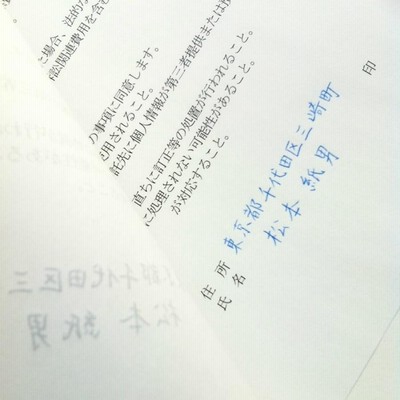 場合、法的な
訟関連費用を含む
の事項に同意します。
用されること。
託先に個人情報が第三者提供または
直ちに訂正等の処置が行われること。
に処理されない可能性があること。
が対応すること。
住所 東京都千代田区三崎町
氏名 松本 紙男 印
都千代田区三
松本 紙男